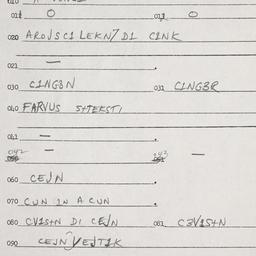 020 AROJSC1 LEKN/D1 C1NK
021 —
030 C1NG3N 031 C1NG3R
040 FARVUS S+TEKST1
041 —
042 — 043 —
060 CEJN
070 CUN 1N A CUN
080 CV1S+N D1 CEJN 081 C3V1S+N
090 CEJN VEJT1K